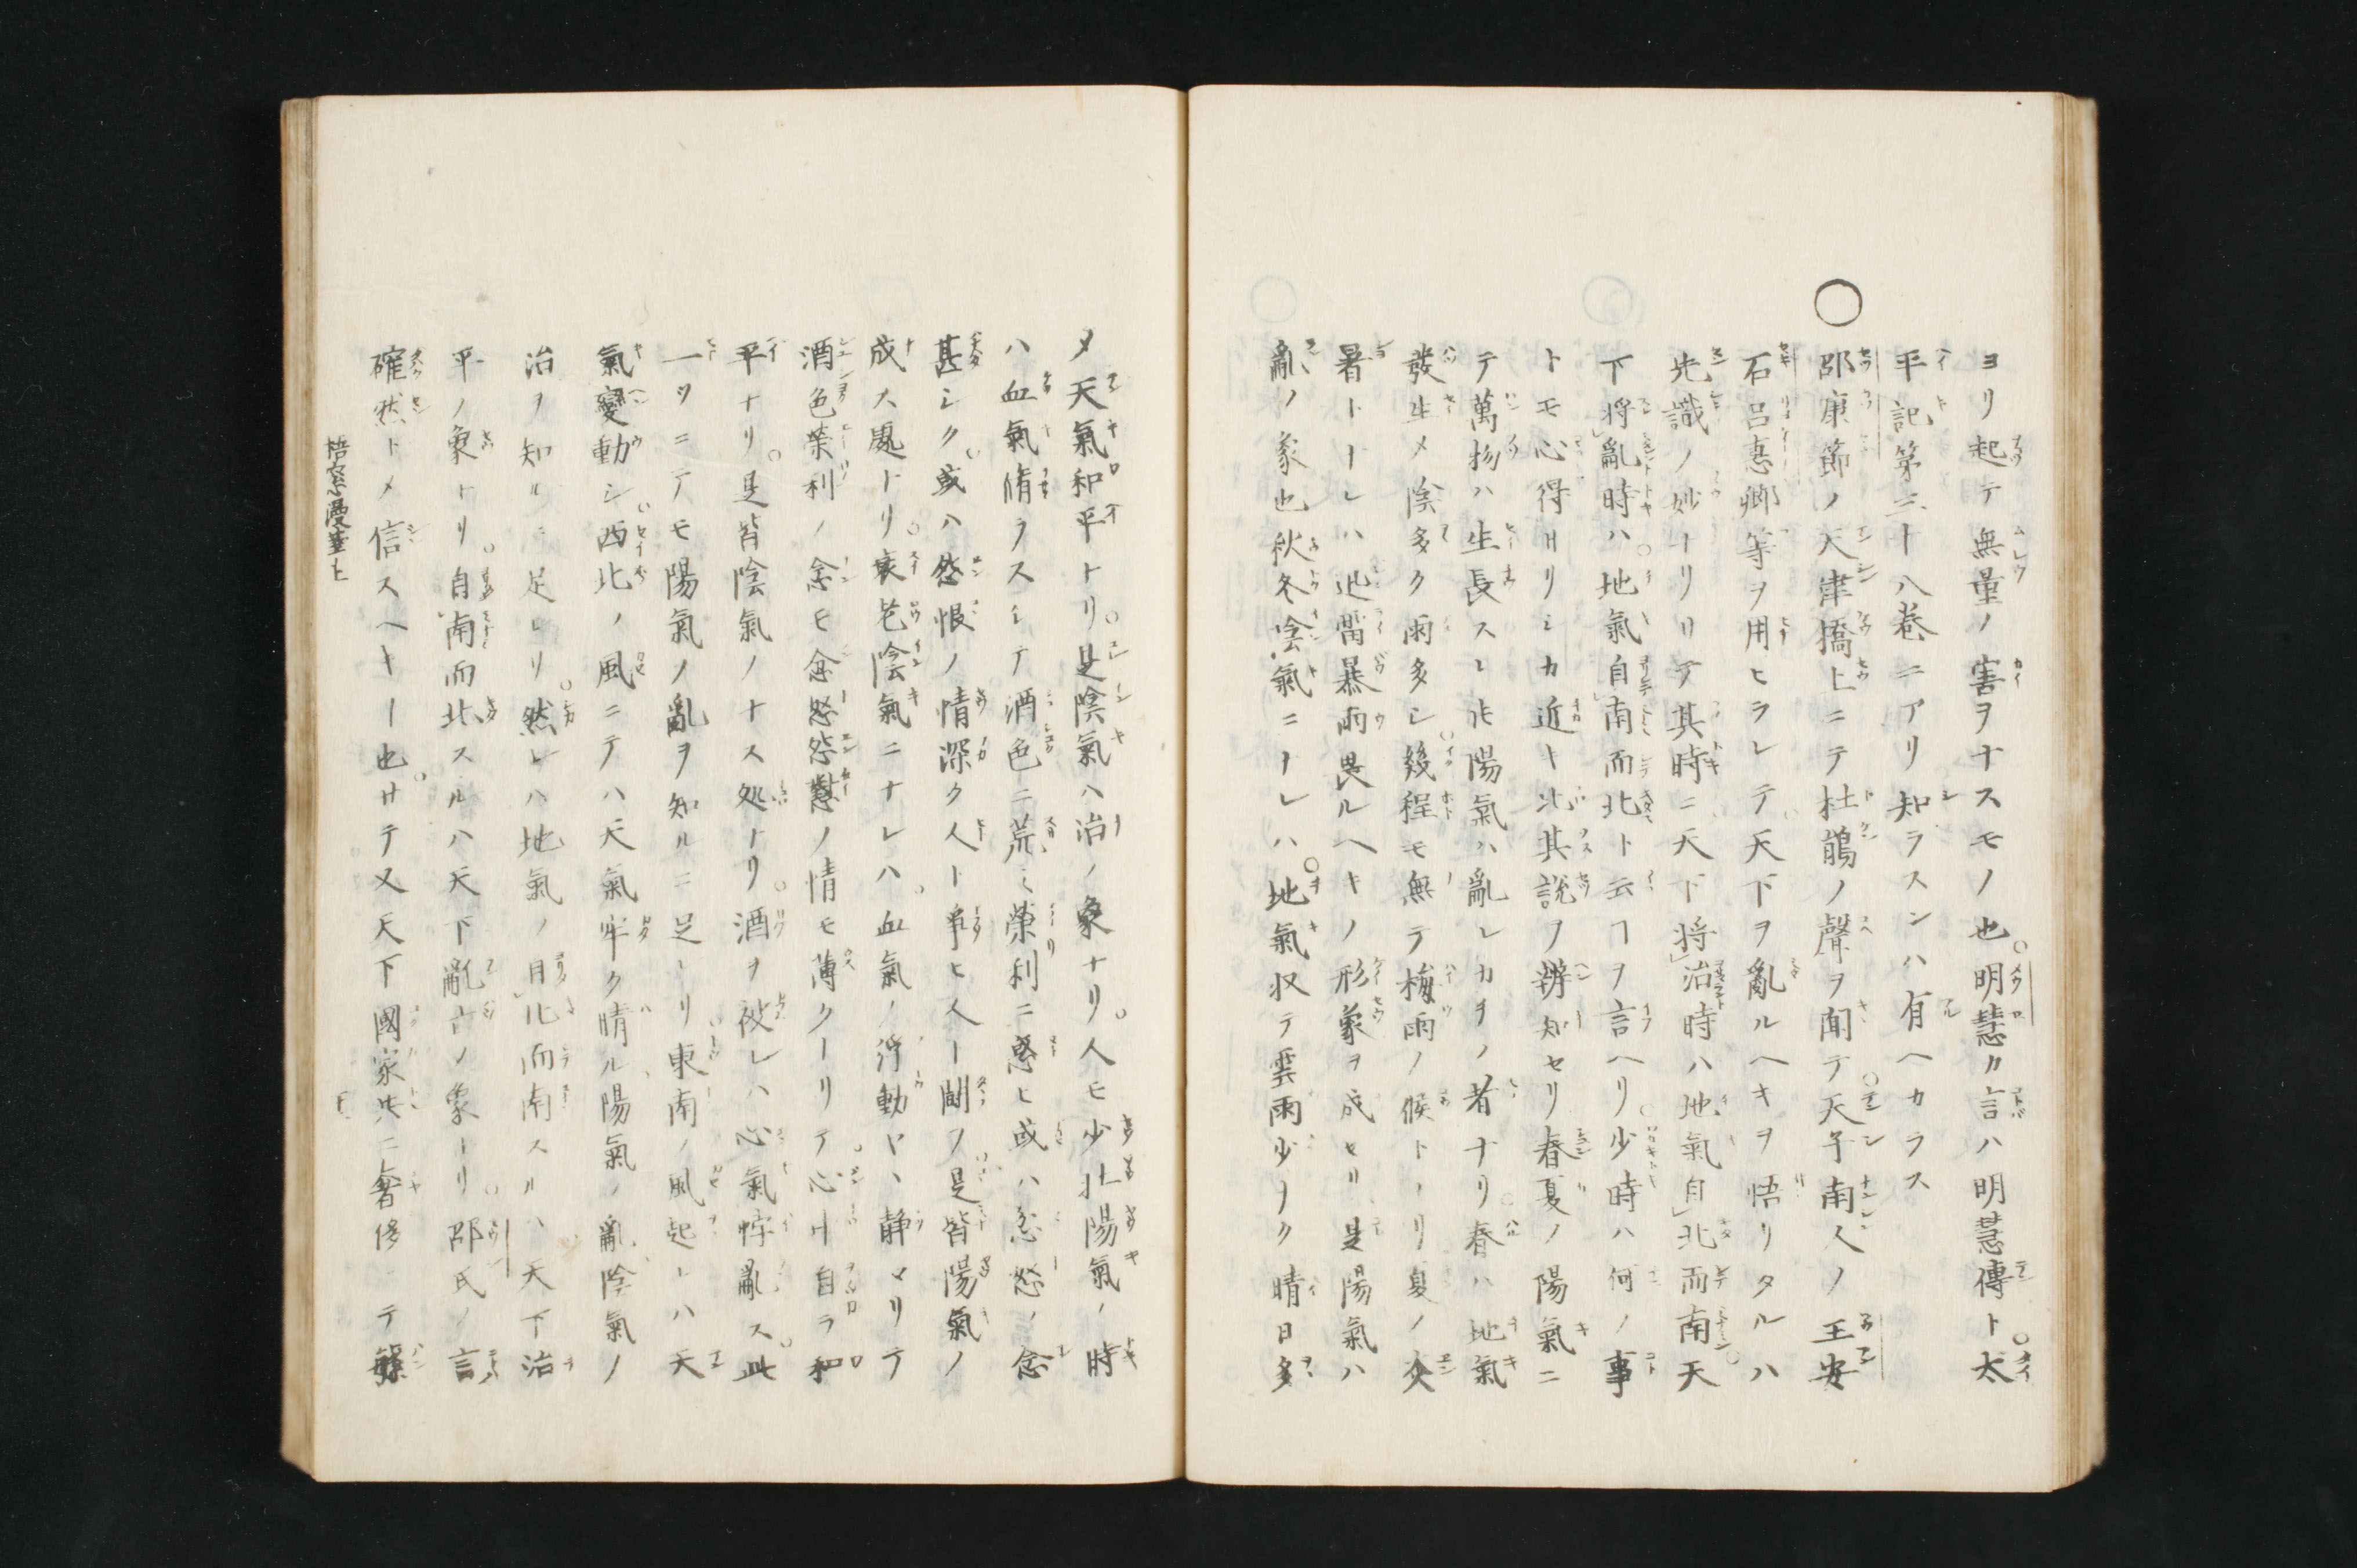 ヨリ起テ無量ノ害ヲナスモノ也。明慧カ言ハ明慧傳ト太
平記第三十八巻ニアリ知ラスンハ有ヘカラス
○邵康節ノ天津橋上ニテ杜鵑ノ聲ヲ聞テ天子南人ノ王安
石呂惠卿等ヲ用ヒラレテ天下ヲ亂ルヘキヲ悟リタルハ
先識ノ妙ナリリテ其時ニ天下将治時ハ地氣自北而南天
下将亂時ハ地氣自南而北ト云ヿヲ言ヘリ。少時ハ何ノ事
トモ心得サリシカ近キ比其説ヲ辨知セリ春夏ノ陽氣ニ
テ萬物ハ生長スレ𪜈陽氣ハ亂レカチノ者ナリ。春ハ地氣
發生メ陰多ク雨多シ。幾程モ無テ梅雨ノ候トナリ夏ノ炎
暑トナレハ迅雷暴雨畏ルヘキノ形象ヲ成セリ是陽氣ハ
亂ノ象也秋冬陰氣ニナレハ。地氣収テ雲雨少ナク晴日多
メ天氣和平ナリ。是陰氣ハ治ノ象ナリ。人モ少壮陽氣ノ時
ハ血氣脩ラスシテ酒色ニ荒ミ榮利ニ惑ヒ或ハ忿怒ノ念
甚シク。或ハ怨恨ノ情深ク人ト爭ヒ人ト鬪フ。是皆陽氣ノ
成ス處ナリ。衰老陰氣ニナレハ。血氣ノ浮動ヤヽ静マリテ
酒色榮利ノ念モ忿怒怨懟ノ情モ薄クナリテ。心サ自ラ和
平ナリ。是皆陰氣ノナス処ナリ。酒ヲ被レハ心氣悖亂ス。此
一ツニテモ陽氣ノ亂ヲ知ルニ足レリ。東南ノ風起レハ天
氣變動シ。西北ノ風ニテハ天氣牢ク晴ル陽氣ノ亂陰氣ノ
治ヲ知ルニ足レリ。然レハ地氣ノ自北而南スルハ天下治
平ノ象ナリ。自南而北スルハ天下亂亡ノ象ナリ。邵氏ノ言
確然トメ信スヘキヿ也。サテ又天下國家共ニ奢侈ニテ繇
梧窓漫筆上